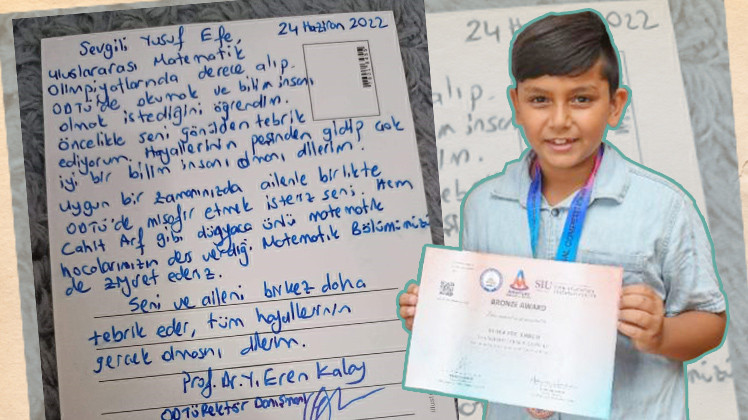 24 Haziran 2022
Sevgili Yusuf Efe,
Uluslararası Matematik
Olimpiyatlarında derece alıp.
ODTÜ'de okumak ve bilim insanı
olmak istediğini öğrendim.
Öncelikle seni gönülden tebrik
ediyorum. Hayallerinin peşinden gidip çok
iyi bir bilim insanı olmanı dilerim.
Uygun bir zamanınızda ailenle birlikte
ODTÜ'de misafir etmek isteriz seni. Hem
Cahit Arf gibi dünyaca ünlü matematik
hocalarımızın ders verdiği Matematik Bölümümüzü
de ziyaret ederiz.
Seni ve aileni birkez daha
tebrik eder, tüm hayallerinin
gerçek olmasını dilerim.
Prof. Dr. Y. Eren Kalay
ODTÜ Rektör Danışmanı
24 Haziran 2022
alıp.
insa
SIU
BRONZE AWARD